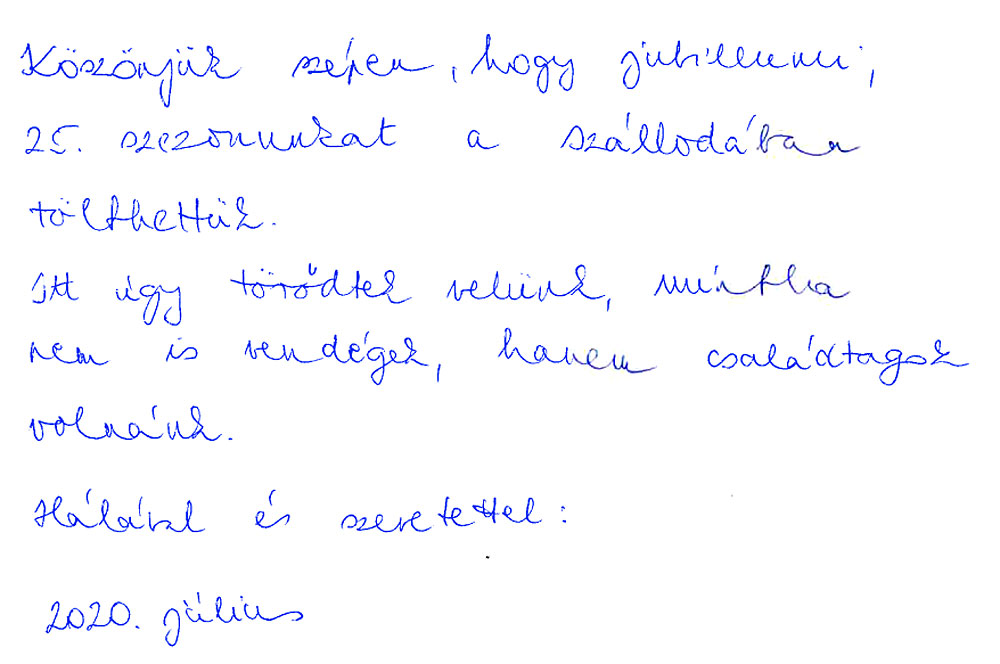 Köszönjük szépen, hogy jubileumi,
25. szezonunkat a szállodában
tölthettük.
Itt úgy törődtek velünk, mintha
nem is vendégek, hanem családtagok
volnánk.
Hálával és szeretettel:
2020. július